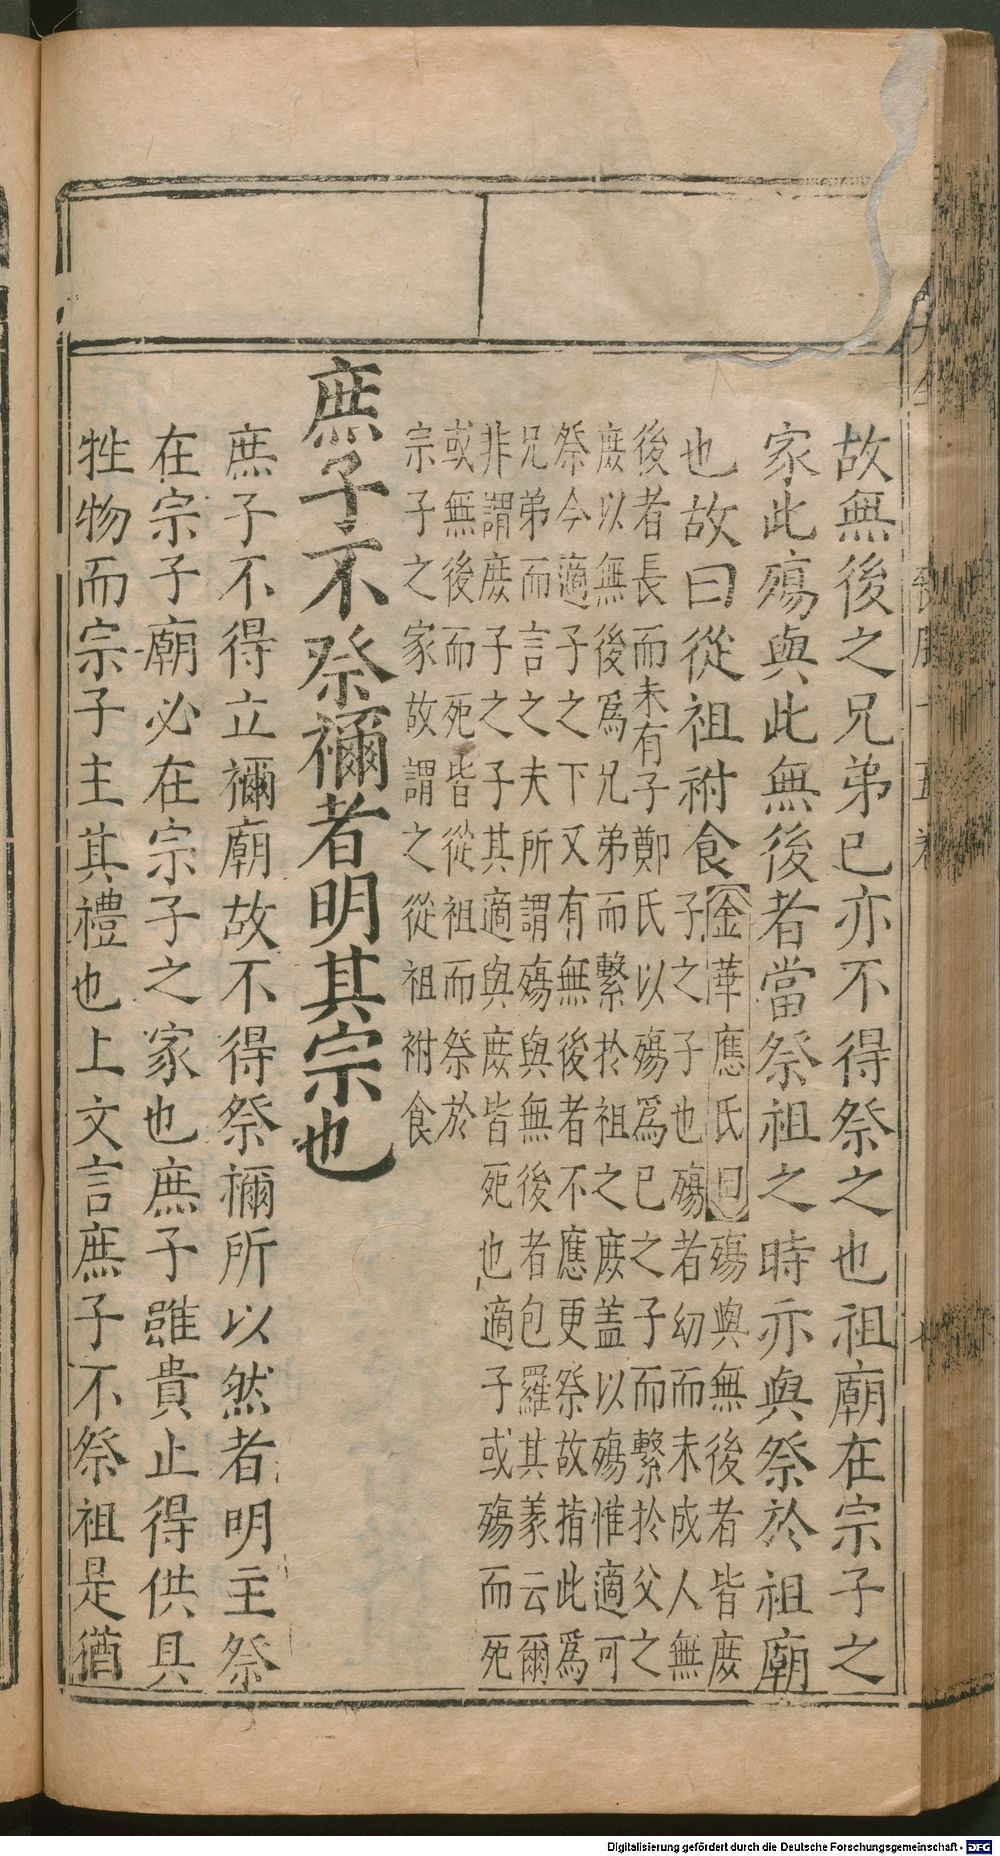 故無後之兄弟已亦不得祭之也祖廟在宗子之
家此殤與此無後者當祭祖之時亦與祭於祖廟
也故曰從祖祔食
金華應氏曰殤與無後者皆庶
子之子也殤者幼而未成人無
後者長而未有子鄭氏以殤爲已之子而繫於父之
庶以無後爲兄弟而繫於祖之庶盖以殤惟適可
祭今適子之下又有無後者不應更祭故指此爲
兄弟而言之夫所謂殤與無後者包羅其義云爾
非謂庶子之子其適與庶皆死也適子或殤而死
或無後而死皆從祖而祭於
宗子之家故謂之從祖祔食
庶子不祭禰者明其宗也
庶子不得立禰廟故不得祭禰所以然者明主祭
在宗子廟必在宗子之家也庶子雖貴止得供具
牲物而宗子主其禮也上文言庶子不祭祖是猶
Digitalisierung gefördert durch die Deutsche Forschungsgemeinschaft - DFG